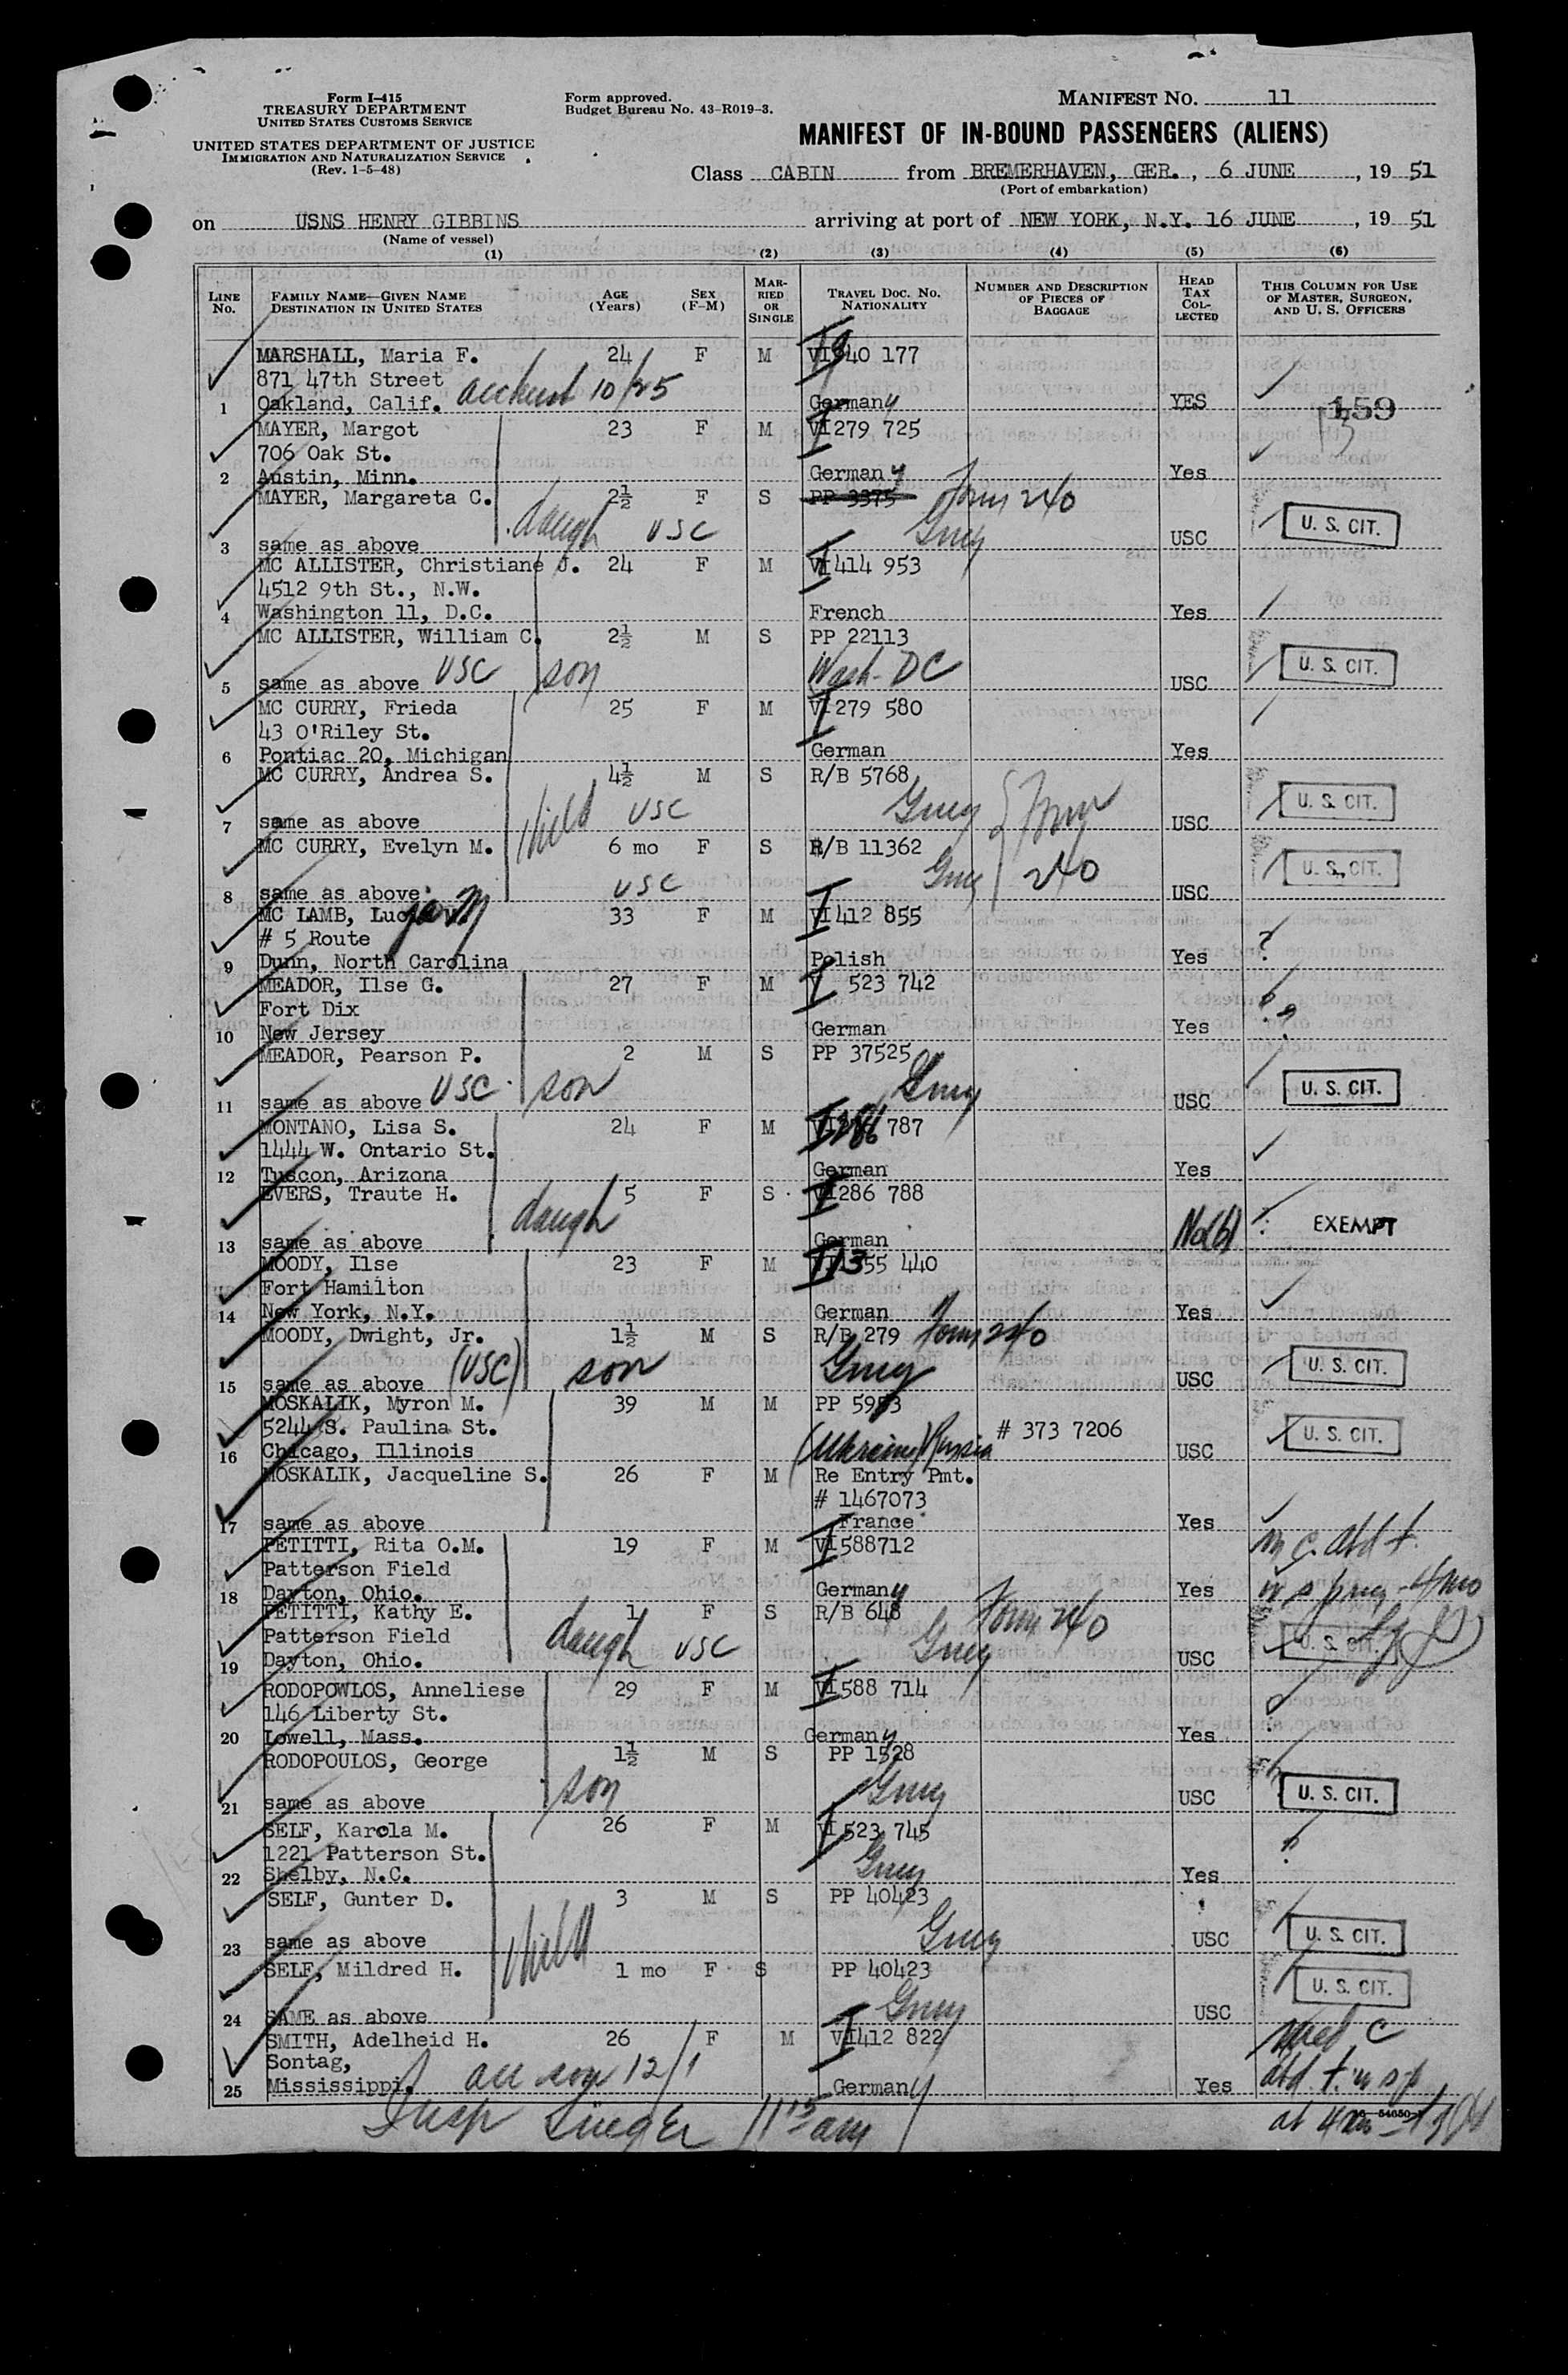 Form I-415
TREASURY DEPARTMENT
UNITED STATES CUSTOMS SERVICE
UNITED STATES DEPARTMENT OF JUSTICE
IMMIGRATION AND NATURALIZATION SERVICE
(Rev. 1-5-48)
Form approved.
Budget Bureau No. 43-R019-3.
MANIFEST NO. 11
MANIFEST OF IN-BOUND PASSENGERS (ALIENS)
Class CABIN from BREMERHAVEN, GER., 6 JUNE, 19 51
(Port of embarkation)
on USNS HENRY GIBBINS arriving at port of NEW YORK, N.Y. 16 JUNE, 19 51
(Name of vessel)
(1) (2) (3) (4) (5) (6)
LINE NO. FAMILY NAME—GIVEN NAME DESTINATION IN UNITED STATES AGE (Years) SEX (F-M) MARRIED OR SINGLE TRAVEL DOC. NO. NATIONALITY NUMBER AND DESCRIPTION OF PIECES OF BAGGAGE HEAD TAX COLLECTED THIS COLUMN FOR USE OF MASTER, SURGEON, AND U. S. OFFICERS
MARSHALL, Maria F. 24 F M 40 177
871 47th Street
1 Oakland, Calif. 10/25 Germany YES 159
MAYER, Margot 23 F M VI 279 725
706 Oak St.
2 Austin, Minn. Germany Yes
MAYER, Margareta C. 2½ F S PP 3375 Form 240
daugh USC Gmy
3 same as above USC U. S. CIT.
MC ALLISTER, Christiane J. 24 F M VI 414 953
4512 9th St., N.W.
4 Washington 11, D.C. French Yes
MC ALLISTER, William C. 2½ M S PP 22113
5 same as above USC son Wash-DC USC U. S. CIT.
MC CURRY, Frieda 25 F M VI 279 580
43 O'Riley St.
6 Pontiac 20, Michigan German Yes
MC CURRY, Andrea S. 4½ M S R/B 5768
7 same as above child USC Gmy Form USC U. S. CIT.
MC CURRY, Evelyn M. 6 mo F S R/B 11362
8 same as above USC Gmy 240 USC U. S. CIT.
MC LAMB, 33 F M VI 412 855
# 5 Route
9 Dunn, North Carolina Polish Yes ?
MEADOR, Ilse G. 27 F M V 523 742
Fort Dix
10 New Jersey German Yes
MEADOR, Pearson P. 2 M S PP 37525
11 same as above USC son Gmy USC U. S. CIT.
MONTANO, Lisa S. 24 F M VI 286 787
1444 W. Ontario St.
12 Tuscon, Arizona German Yes
EVERS, Traute H. 5 F S VI 286 788
daugh
13 same as above German No(b) EXEMPT
MOODY, Ilse 23 F M 55 440
Fort Hamilton
14 New York, N.Y. German Yes
MOODY, Dwight, Jr. 1½ M S R/B 279 Form 240
15 same as above (USC) son Gmy USC U. S. CIT.
MOSKALIK, Myron M. 39 M M PP 5953
5244 S. Paulina St. # 373 7206
16 Chicago, Illinois (Ukraine) Russia USC U. S. CIT.
MOSKALIK, Jacqueline S. 26 F M Re Entry Pmt.
# 1467073
17 same as above France Yes
PETITTI, Rita O.M. 19 F M VI 588712
Patterson Field
18 Dayton, Ohio. Germany Yes
PETITTI, Kathy E. 1 F S R/B 648 Form 240
Patterson Field daugh USC Gmy
19 Dayton, Ohio. USC U. S. CIT.
RODOPOWLOS, Anneliese 29 F M VI 588 714
146 Liberty St.
20 Lowell, Mass. Germany Yes
RODOPOULOS, George 1½ M S PP 1528
son Gmy
21 same as above USC U. S. CIT.
SELF, Karola M. 26 F M VI 523 745
1221 Patterson St.
22 Shelby, N.C. Gmy Yes
SELF, Gunter D. 3 M S PP 40423
23 same as above child Gmy USC U. S. CIT.
SELF, Mildred H. 1 mo F S PP 40423
24 SAME as above Gmy USC U. S. CIT.
SMITH, Adelheid H. 26 F M VI 412 822
Sontag,
25 Mississippi. 12/1 Germany Yes
Insp 11 15 am